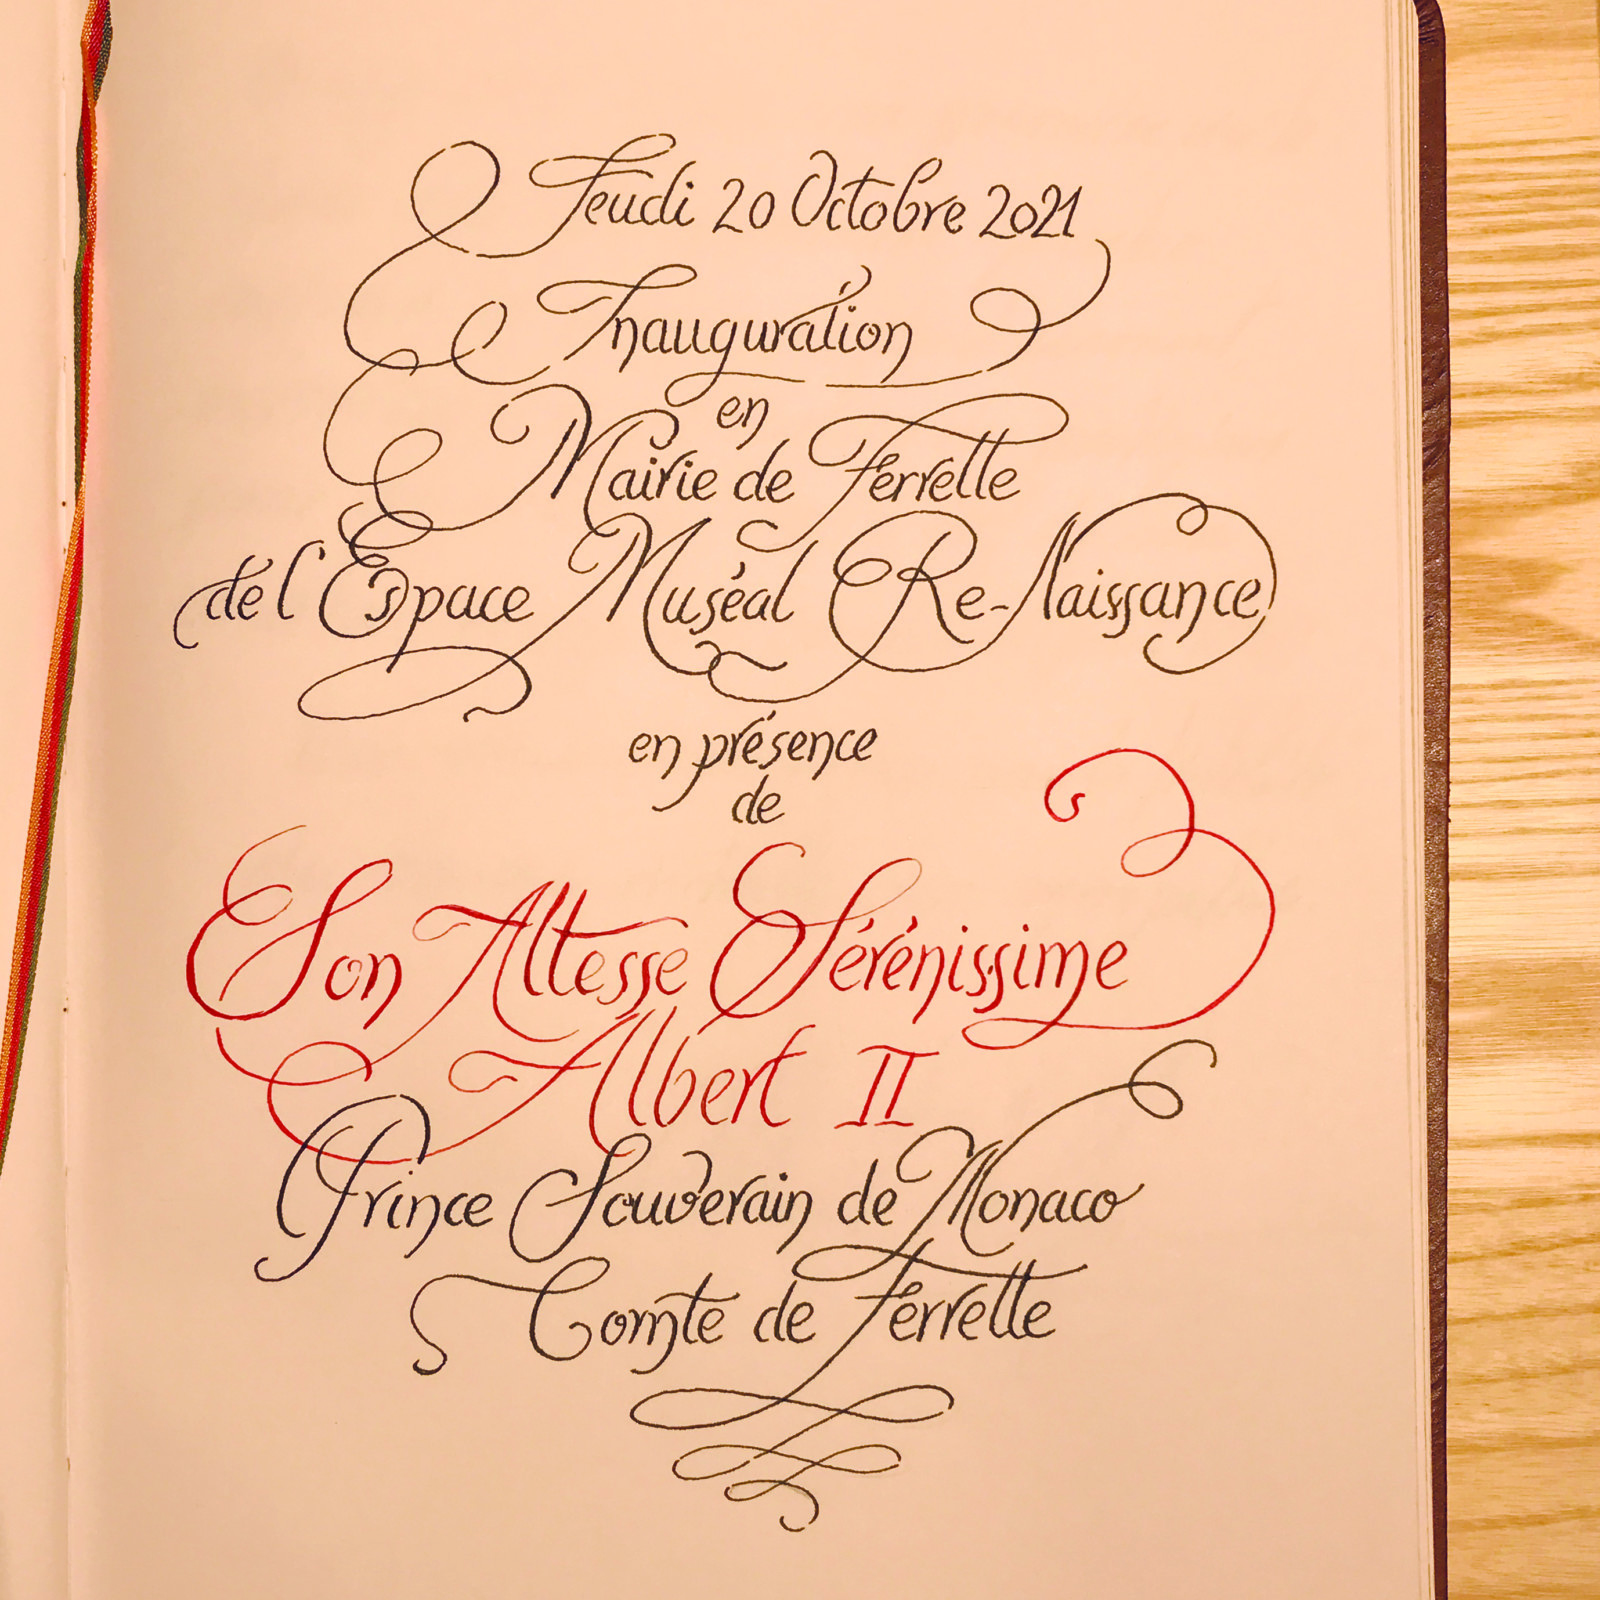 Jeudi 20 Octobre 2021
Inauguration
en
Mairie de Ferrette
de l'Espace Muséal Re-Naissance
en présence
de
Son Altesse Sérénissime
Albert II
Prince Souverain de Monaco
Comte de Ferrette